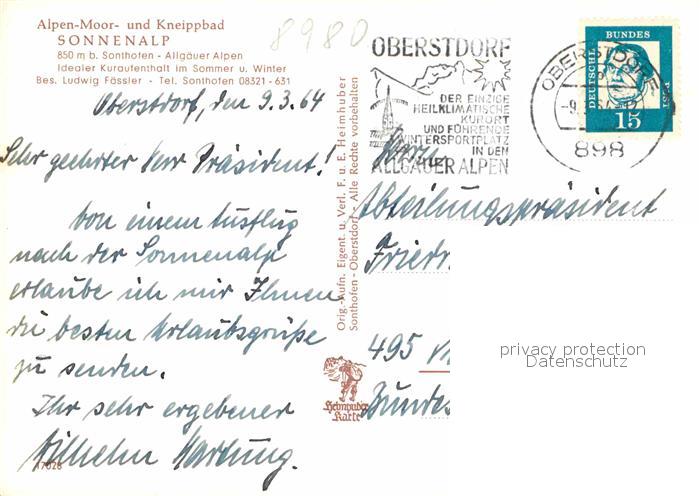 Alpen-Moor- und Kneippbad
SONNENALP
850 m b. Sonthofen - Allgäuer Alpen
Idealer Kuraufenthalt im Sommer u. Winter
Bes. Ludwig Fässler - Tel. Sonthofen 08321 - 631
8980
Oberstdorf, den 9.3.64
Sehr geehrter Herr Präsident!
Von einem Ausflug
nach der Sonnenalp
erlaube ich mir Ihnen
die besten Urlaubsgrüße
zu senden.
Ihr sehr ergebener
Wilhelm Hartung.
17028
Orig.-Aufn. Eigent. u. Verl. F. u. E. Heimhuber
Sonthofen-Oberstdorf - Alle Rechte vorbehalten
Heimhuber
Karte
OBERSTDORF
DER EINZIGE
HEILKLIMATISCHE
KURORT
UND FÜHRENDE
WINTERSPORTPLATZ
IN DEN
ALLGÄUER ALPEN
OBERSTDORF
898
DEUTSCHE BUNDESPOST
15
Herrn
Abteilungspräsident
Friedr
495
Bundes
privacy protection
Datenschutz